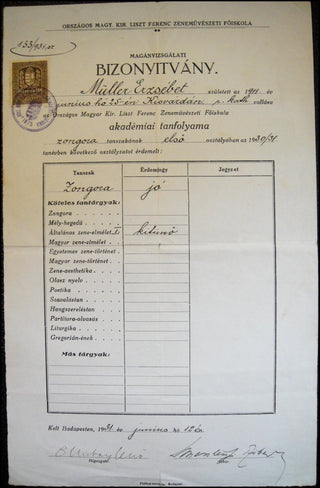 ORSZÁGOS MAGY. KIR. LISZT FERENC ZENEMŰVÉSZETI FŐISKOLA
133/931.sz
MAGÁNVIZSGÁLATI
BIZONYITVÁNY.
Müller Erzsébet, született az 1911 év
junius hó 25-én Kisvárdán r. kath vallásu
az Országos Magy. Kir. Liszt Ferenc Zeneművészeti Főiskola
akadémiai tanfolyama
zongora tanszakának első osztályában az 1930/31
tanévben következő osztályzatot érdemelt:
Tanszak Érdemjegy Jegyzet
Zongora jó
Köteles tantárgyak:
Zongora
Mély-hegedű
Általános zene-elmélet I. kitünő
Magyar zene-elmélet
Egyetemes zene-történet
Magyar zene-történet
Zene-aesthetika
Olasz nyelv
Poetika
Szavalástan
Hangszereléstan
Partitura-olvasás
Liturgika
Gregorián-ének
Más tárgyak:
Kelt Budapesten, 1931 évi junius hó 12 én
főigazgató